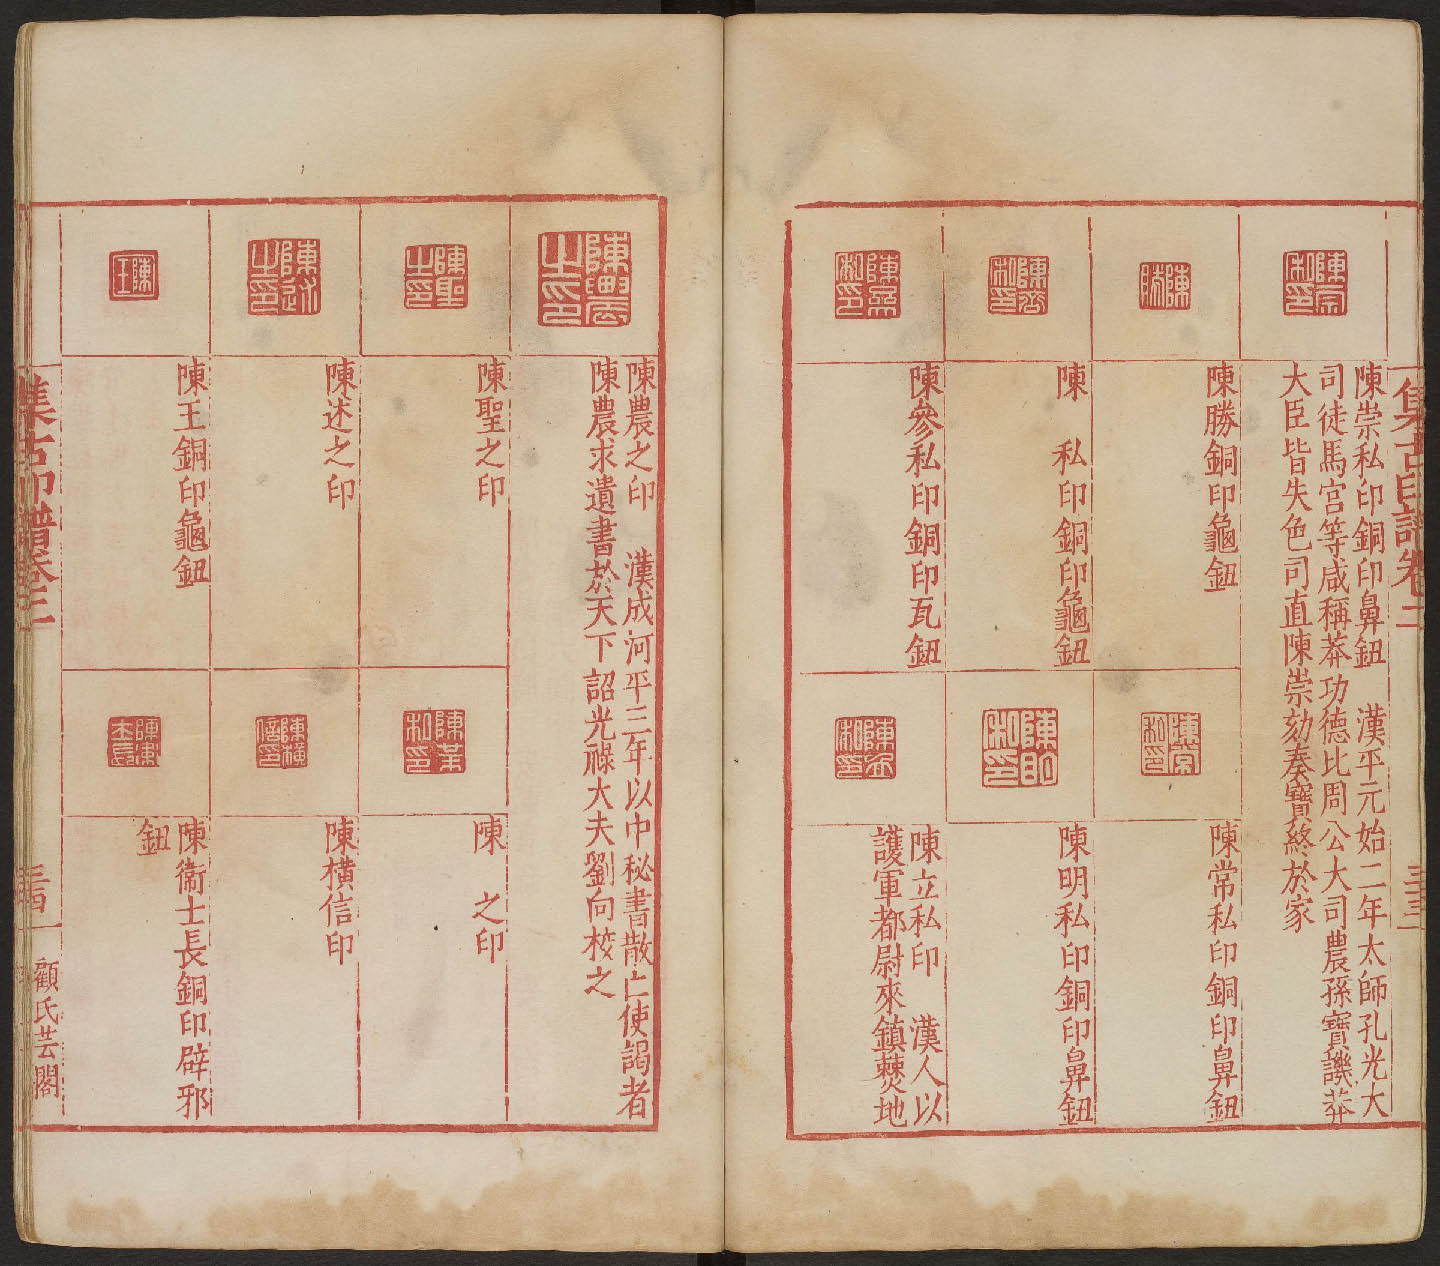 集古印譜卷二
陳崇私印銅印鼻鈕 漢平元始二年太師孔光大
司徒馬宮等咸稱莽功德比周公大司農孫寶譏莽
大臣皆失色司直陳崇劾奏寶終於家
陳勝銅印龜鈕
陳 私印銅印龜鈕
陳參私印銅印瓦鈕
陳常私印銅印鼻鈕
陳明私印銅印鼻鈕
陳立私印 漢人以
護軍都尉來鎮僰地
陳農之印 漢成河平三年以中秘書散亡使謁者
陳農求遺書於天下詔光祿大夫劉向校之
陳聖之印
陳述之印
陳王銅印龜鈕
陳 之印
陳橫信印
陳衞士長銅印辟邪
鈕
集古印譜卷二
三四
顧氏芸閣